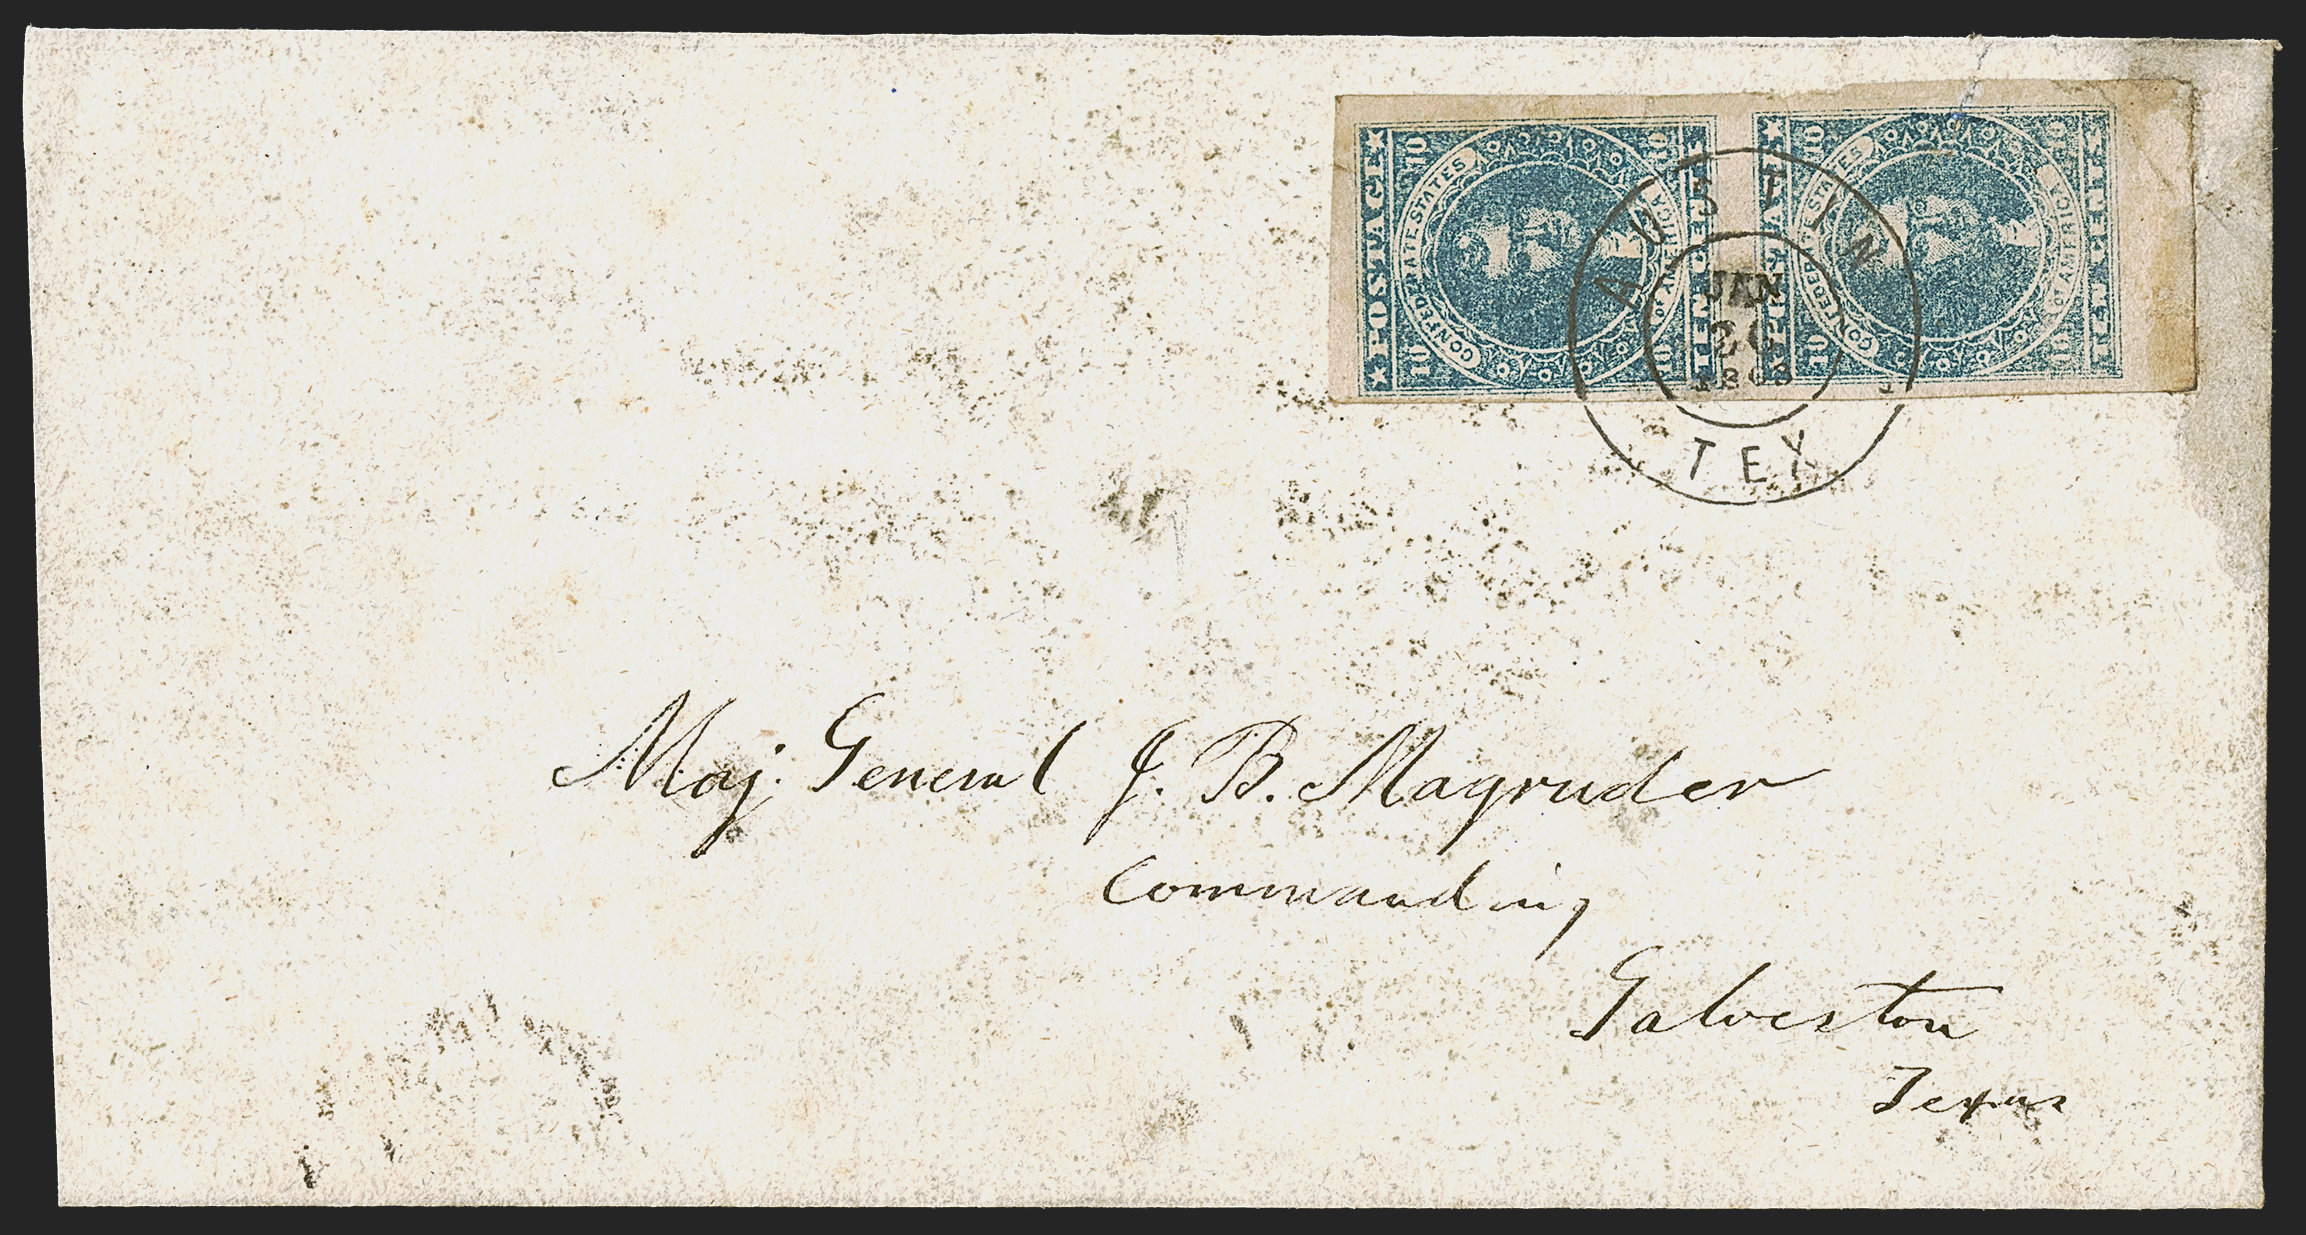 POSTAGE
10 10
CONFEDERATE STATES
OF AMERICA
10 10
TEN CENTS
10 10
STATES
OF AMERICA
10 10
TEN CENTS
AUSTIN
JAN
1863
TEX
Maj. General J. B. Magruder
Commanding
Galveston
Texas